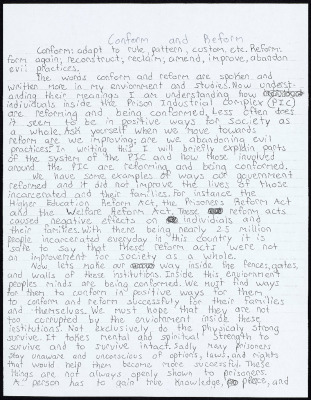 Conform and Reform
Conform: adapt to rule, pattern, custom, etc. Reform:
form again; reconstruct, reclaim; amend, improve, abandon
evil practices.
The words conform and reform are spoken and
written more in my environment and studies. Now underst-
anding their meanings I am understanding how
individuals inside the Prison Industrial Complex (PIC)
are reforming and being conformed. Less often does
it seem to be in positive ways for society as
a whole. Ask yourself when we move towards
reform are we improving; are we abandoning evil
practices. In writing this I will briefly explain parts
of the system of the PIC and how those involved
around the PIC are reforming and being conformed.
We have some examples of ways our government
reformed and it did not improve the lives of those
incarcerated and their families. For instance the
Higher Education Reform Act, the Prisoners Reform Act
and the Welfare Reform Act. These reform acts
caused negative effects on individuals and
their families. With there being nearly 2.5 million
people incarcerated everyday in this country it is
safe to say that these reform acts were not
an improvement for society as a whole.
Now lets make our way inside the fences, gates,
and walls of these institutions. Inside this enviornment
peoples minds are being conformed. We must find ways
for them to conform in positive ways for them
to conform and reform successfully for their families
and themselves. We must hope that they are not
too corrupted by the enviornment inside these
institutions. Not exclusively do the physically strong
survive. It takes mental and spiritual strength to
survive and to survive intact. Sadly many prisoners
stay unaware and unconscious of options, laws, and rights
that would help them become more successful. These
things are not always openly shown to prisoners.
A person has to gain true knowledge, peace, and